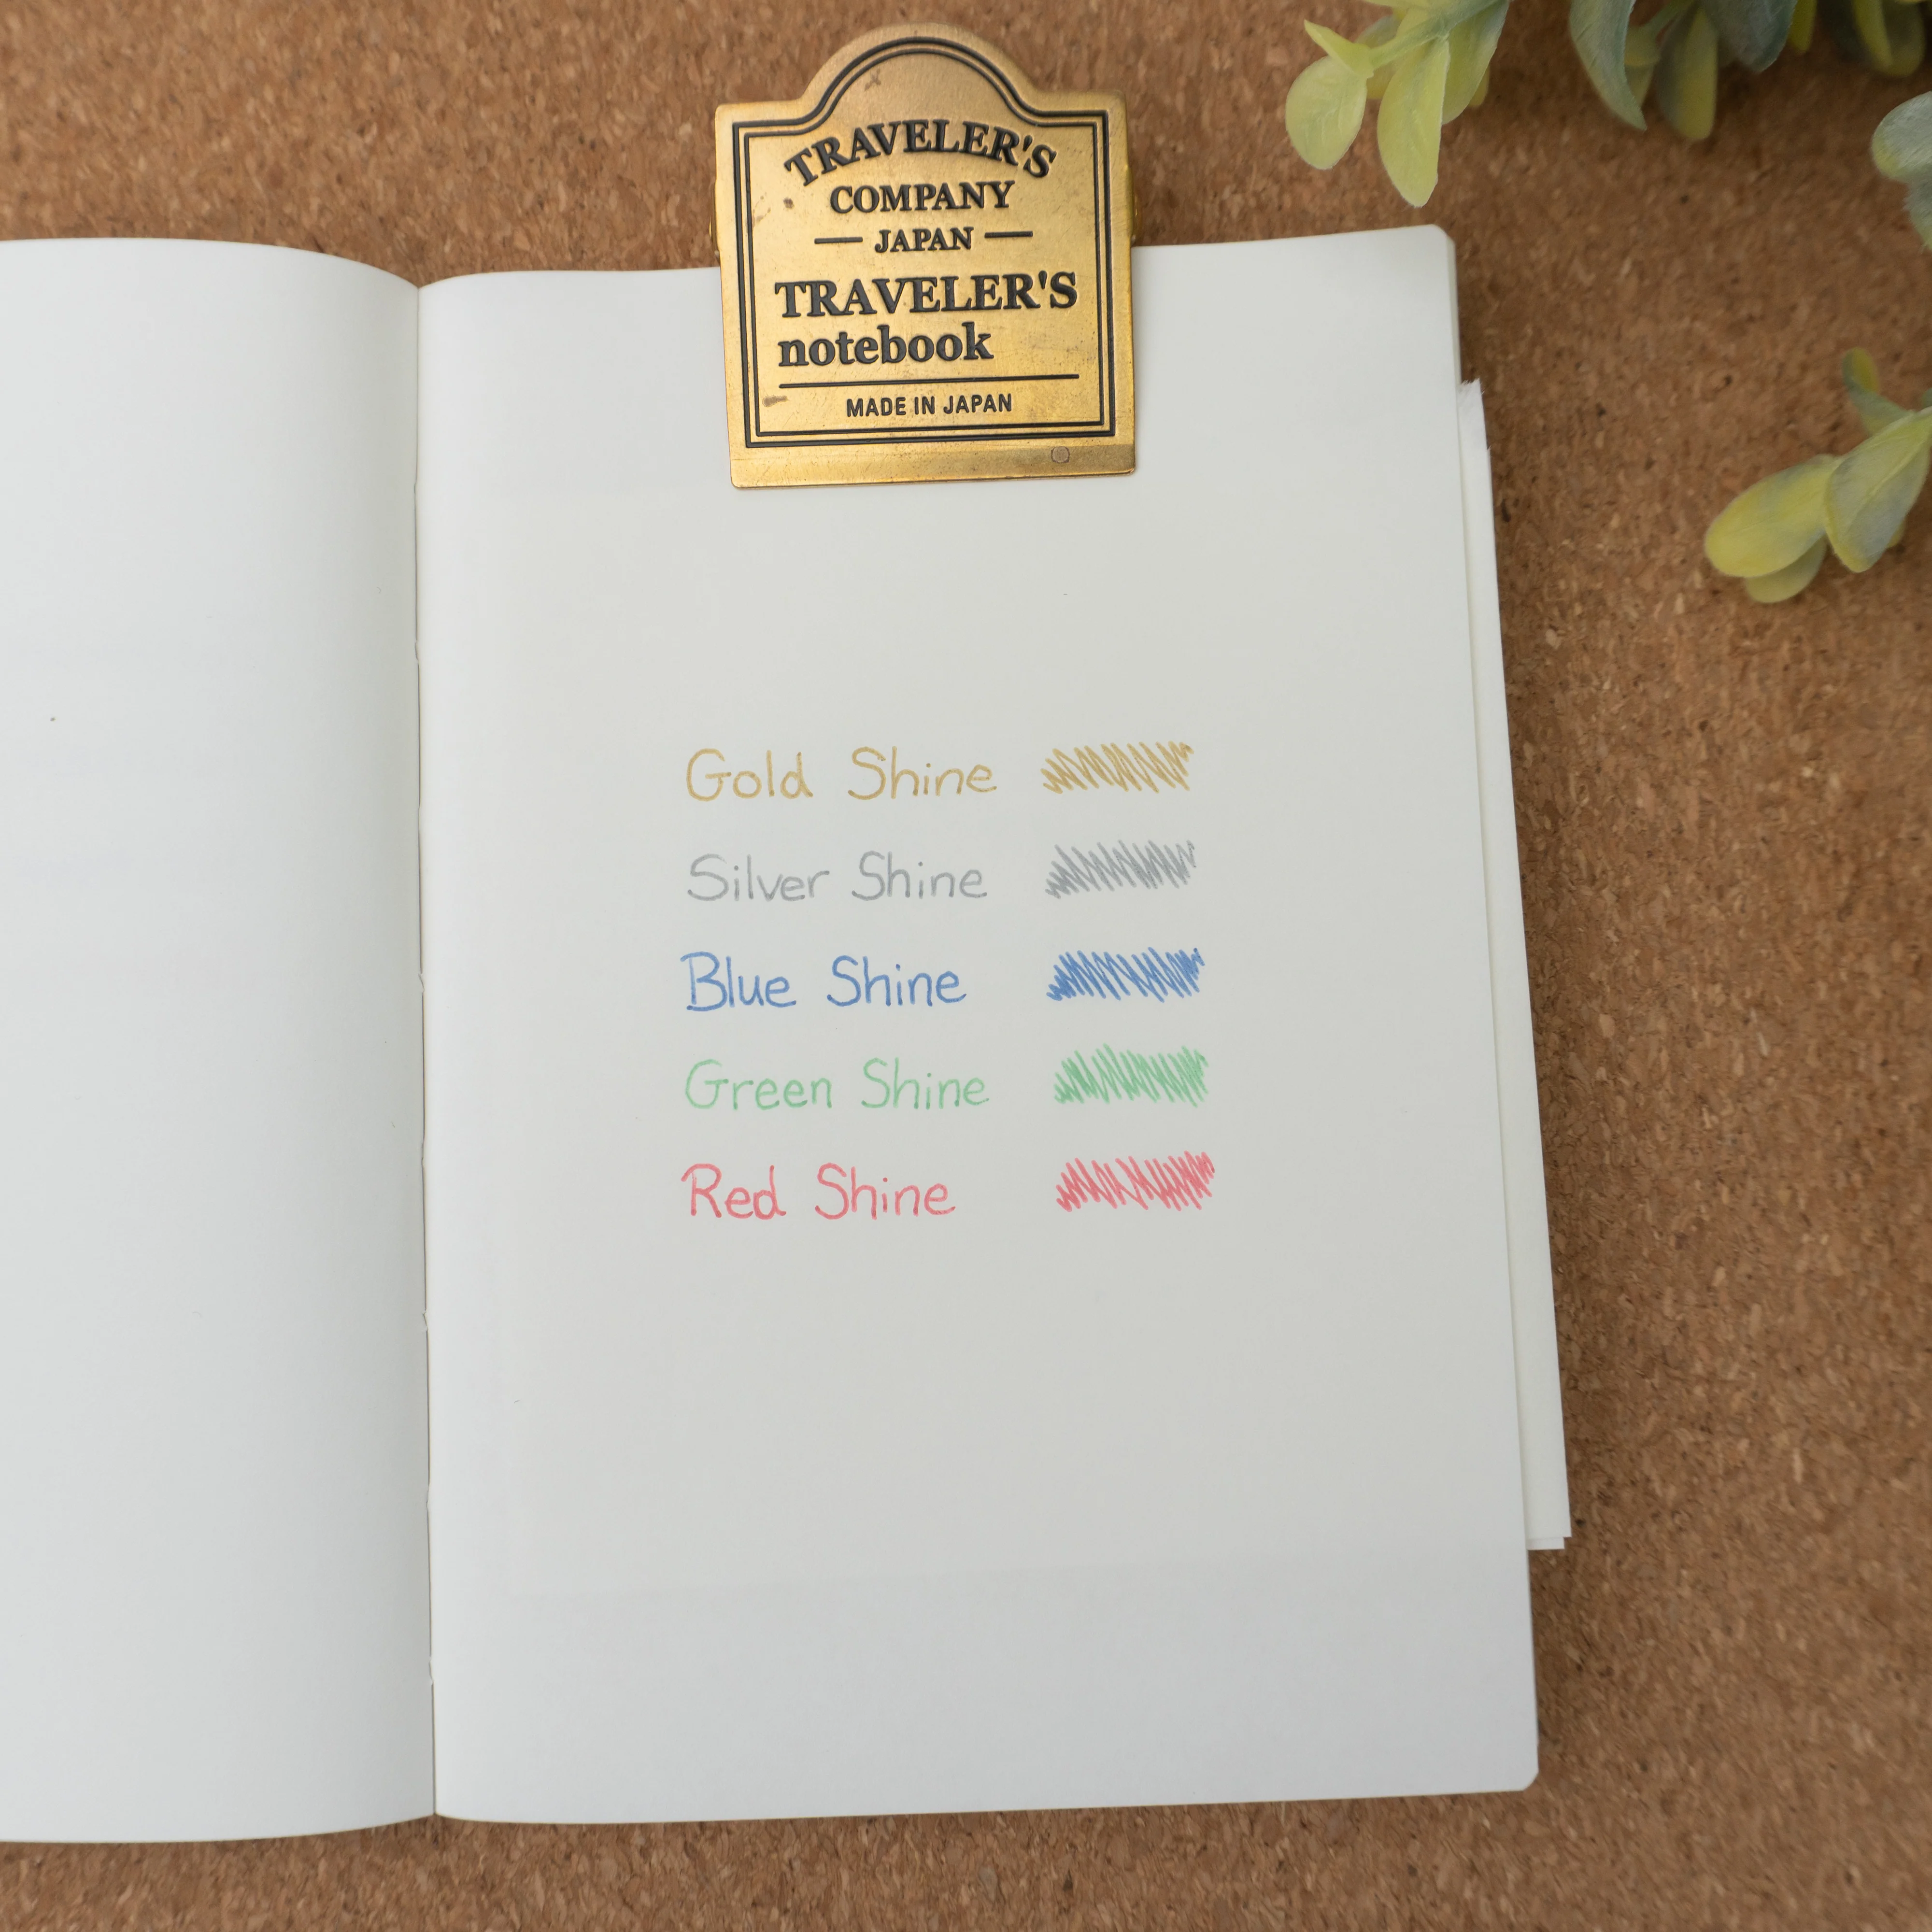 TRAVELER'S
COMPANY
JAPAN
TRAVELER'S
notebook
MADE IN JAPAN
Gold Shine
Silver Shine
Blue Shine
Green Shine
Red Shine